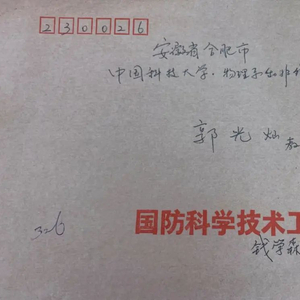 230026
安徽省合肥市
中国科技大学·物理系
郭光灿 教
326
国防科学技术工
钱学森